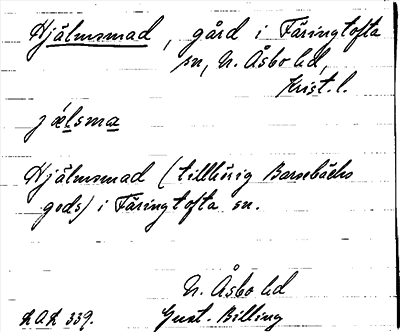 Hjälmsmad, gård i Färingtofta
sn, N. Åsbo hd,
Krist. l.
jælsma
Hjälmsmad (tillhörig Barsebäcks
gods) i Färingtofta sn.
N. Åsbo hd
339. Gust. Billing